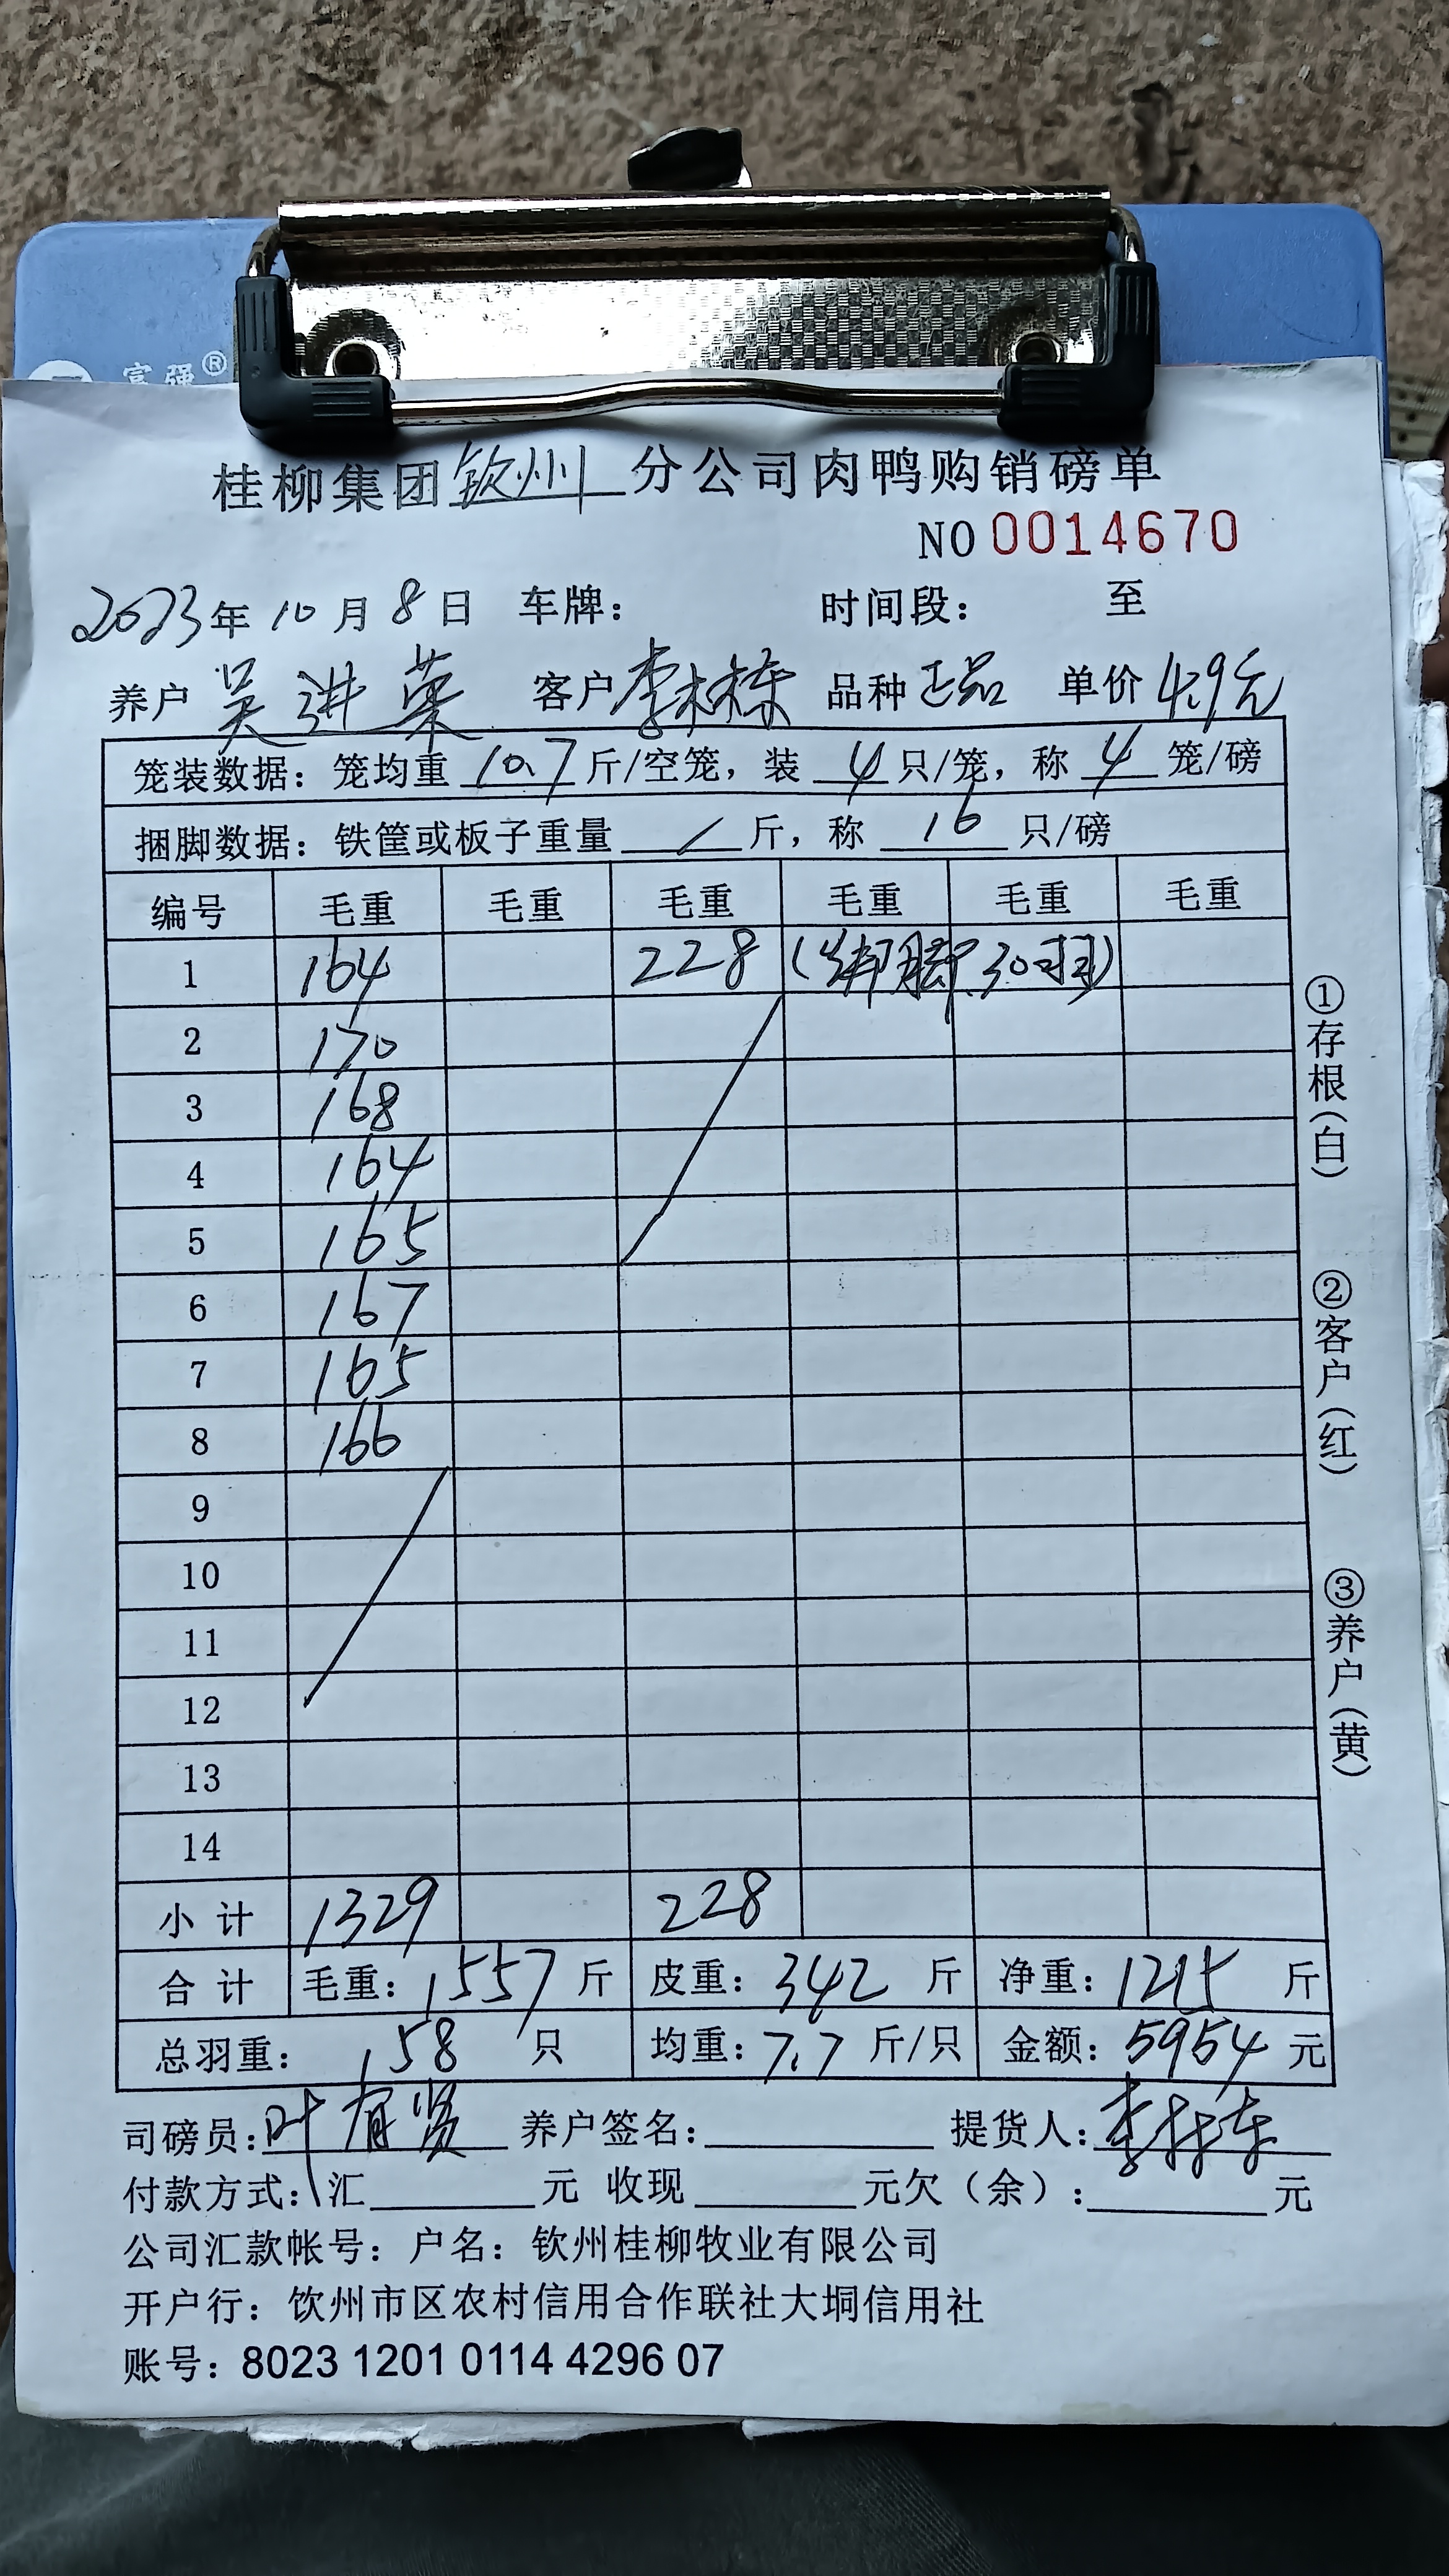 富强®
桂柳集团钦州分公司肉鸭购销磅单
NO 0014670
2023年10月8日 车牌： 时间段： 至
养户 吴进荣 客户 李林栋 品种 正品 单价 4.9元
笼装数据：笼均重 10.7 斤/空笼，装 4 只/笼，称 4 笼/磅
捆脚数据：铁筐或板子重量 / 斤，称 16 只/磅
编号 毛重 毛重 毛重 毛重 毛重 毛重
1 164 228 (绑脚30羽)
2 170
3 168
4 164
5 165
6 167
7 165
8 166
9
10
11
12
13
14
小计 1329 228
合计 毛重：1557 斤 皮重：342 斤 净重：1215 斤
总羽重：158 只 均重：7.7 斤/只 金额：5954 元
司磅员：叶有贤 养户签名： 提货人：
付款方式：汇 元 收现 元欠（余）： 元
公司汇款帐号：户名：钦州桂柳牧业有限公司
开户行：饮州市区农村信用合作联社大垌信用社
账号：8023 1201 0114 4296 07
①存根（白）
②客户（红）
③养户（黄）